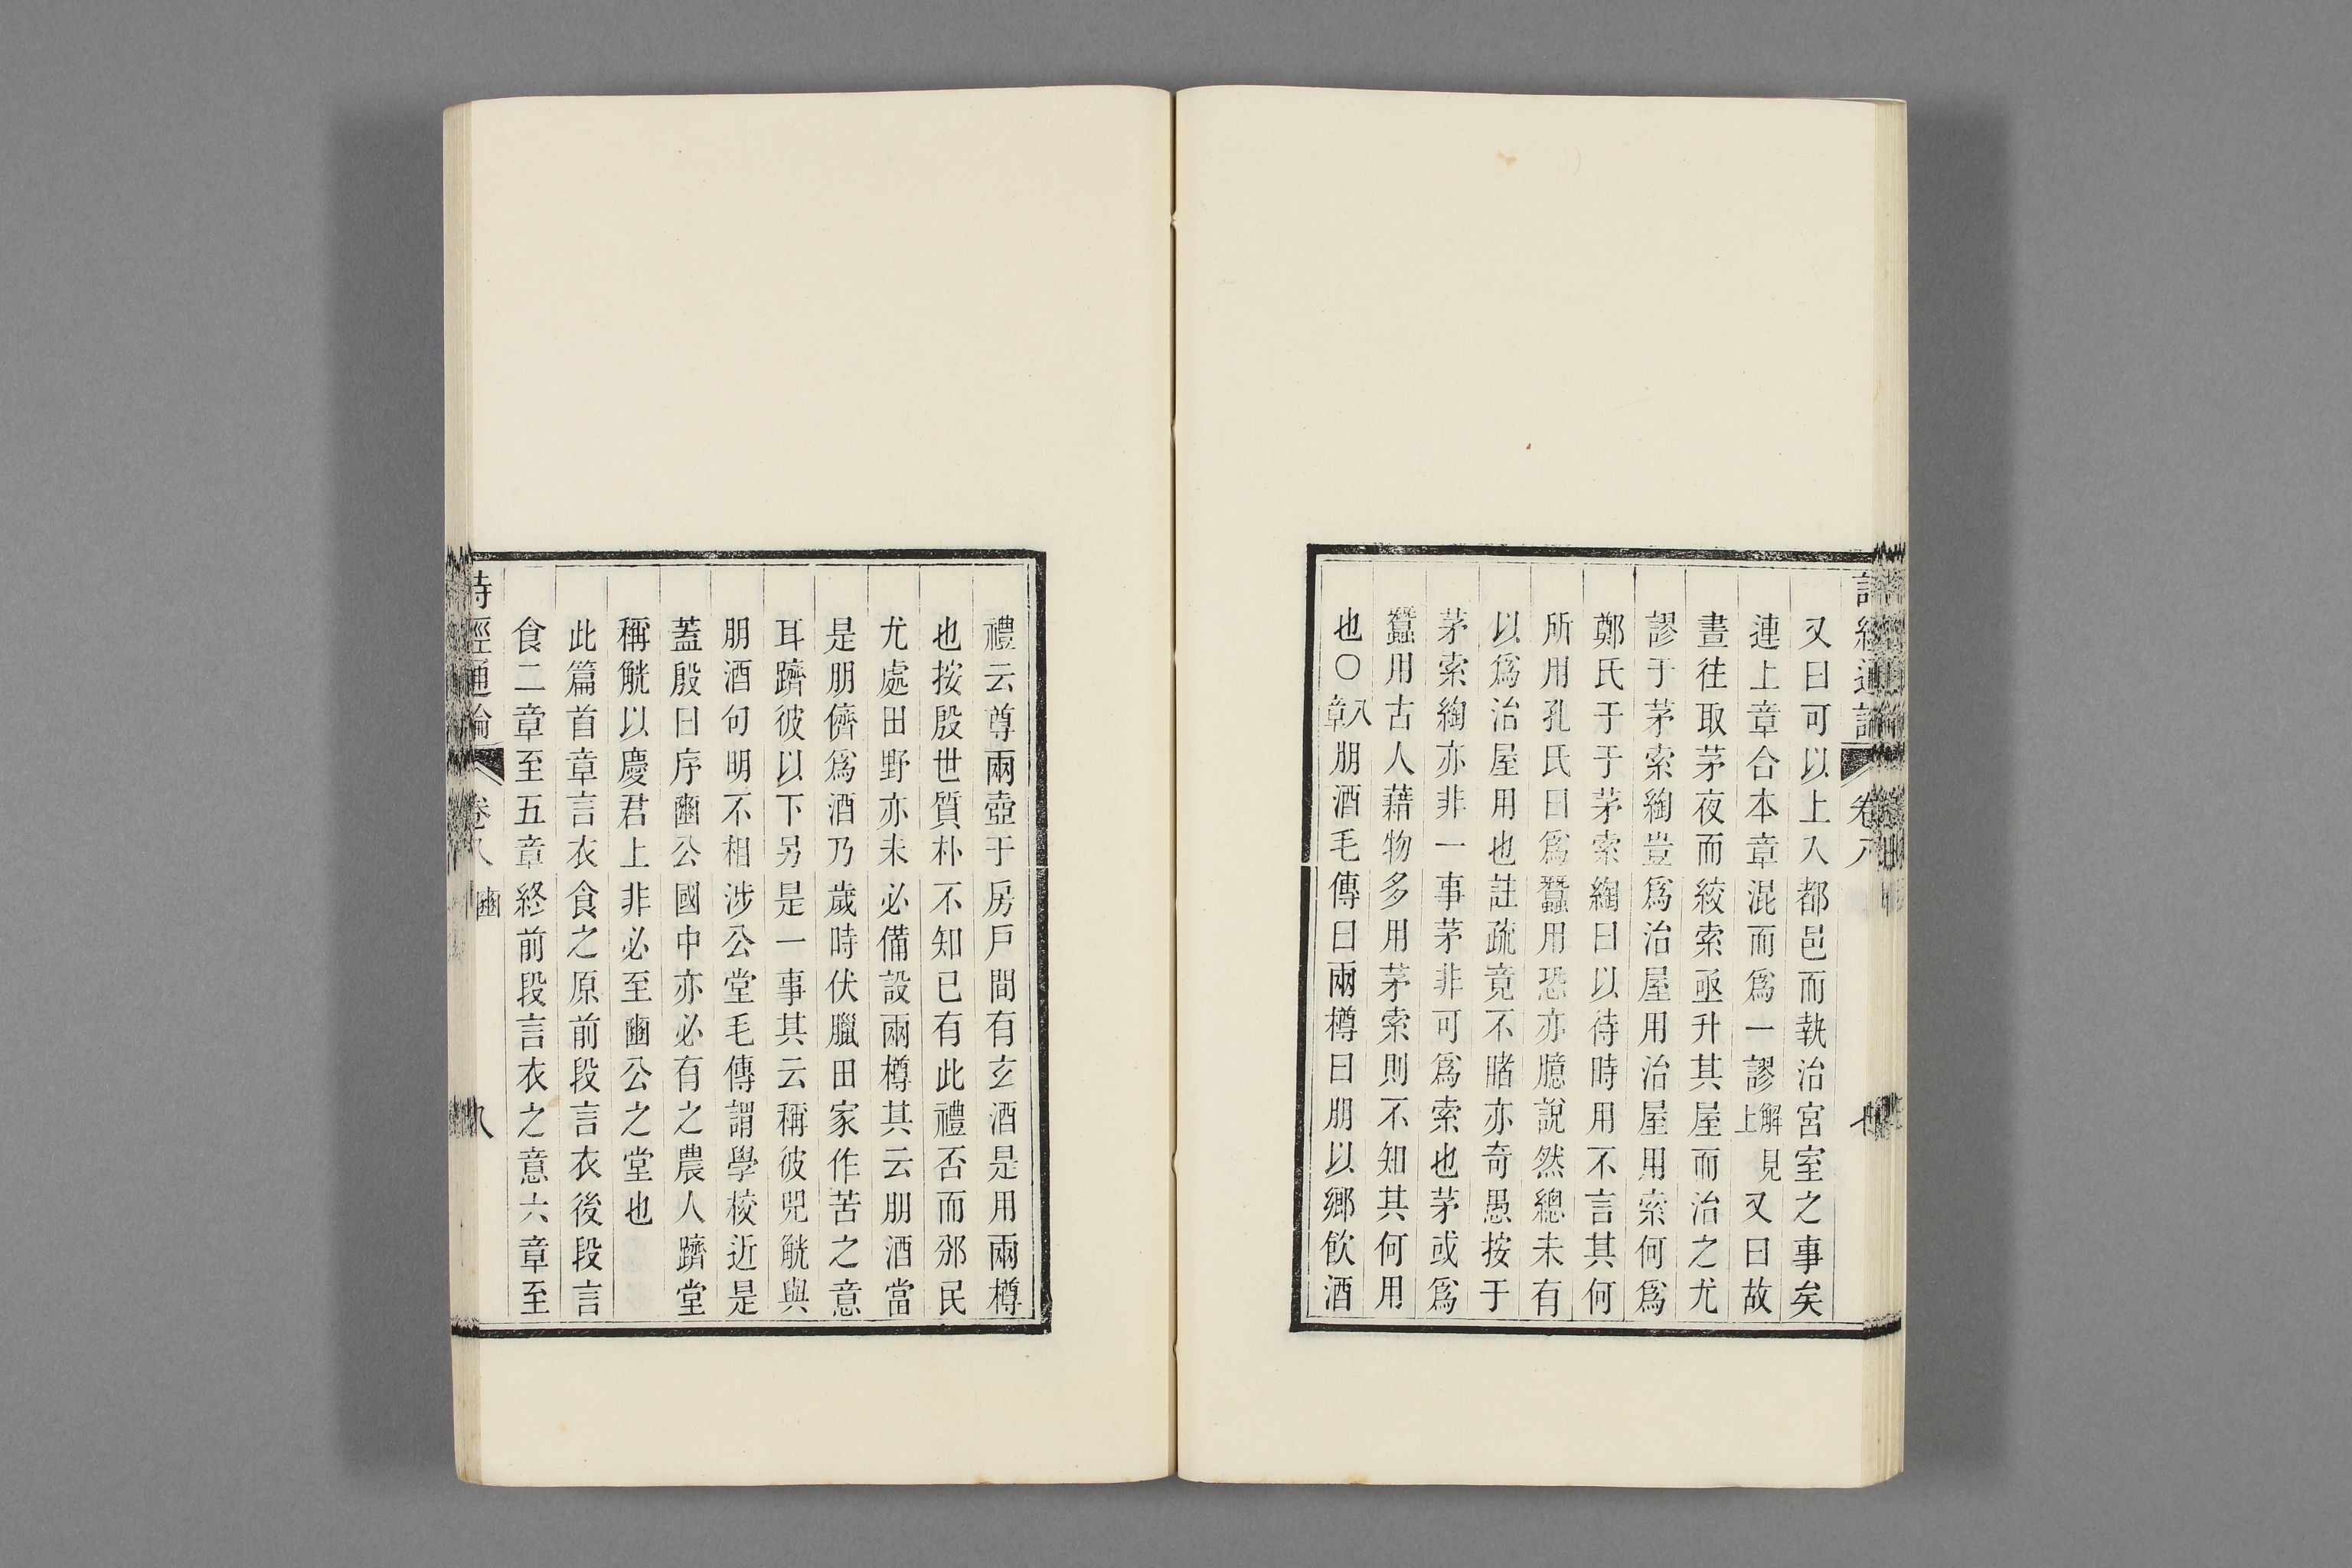 又曰可以上入都邑而執治宮室之事矣
連上章合本章混而爲一謬解見上又曰故
晝往取茅夜而絞索亟升其屋而治之尤
謬于茅索綯豈爲治屋用治屋用索何爲
鄭氏于于茅索綯曰以待時用不言其何
所用孔氏曰爲蠶用恐亦臆說然總未有
以爲治屋用也註疏竟不睹亦奇愚按于
茅索綯亦非一事茅非可爲索也茅或爲
蠶用古人藉物多用茅索則不知其何用
也○八章朋酒毛傳曰兩樽曰朋以鄉飲酒
禮云尊兩壺于房戶間有玄酒是用兩樽
也按殷世質朴不知已有此禮否而邠民
尤處田野亦未必備設兩樽其云朋酒當
是朋儕爲酒乃歲時伏臘田家作苦之意
耳躋彼以下另是一事其云稱彼兕觥與
朋酒句明不相涉公堂毛傳謂學校近是
蓋殷曰序豳公國中亦必有之農人躋堂
稱觥以慶君上非必至豳公之堂也
此篇首章言衣食之原前段言衣後段言
食二章至五章終前段言衣之意六章至
詩經通論 卷八 豳 八